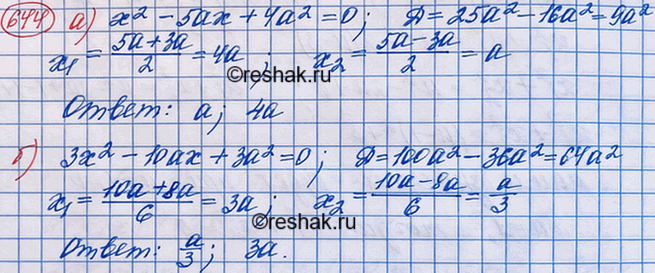 644 а) x² - 5ax + 4a² = 0; Д = 25a² - 16a² = 9a²
x₁ = (5a+3a)/2 = 4a; x₂ = (5a-3a)/2 = a
©reshak.ru
Ответ: a; 4a
б) 3x² - 10ax + 3a² = 0; Д = 100a² - 36a² = 64a²
x₁ = (10a+8a)/6 = 3a; x₂ = (10a-8a)/6 = a/3
©reshak.ru
Ответ: a/3; 3a.